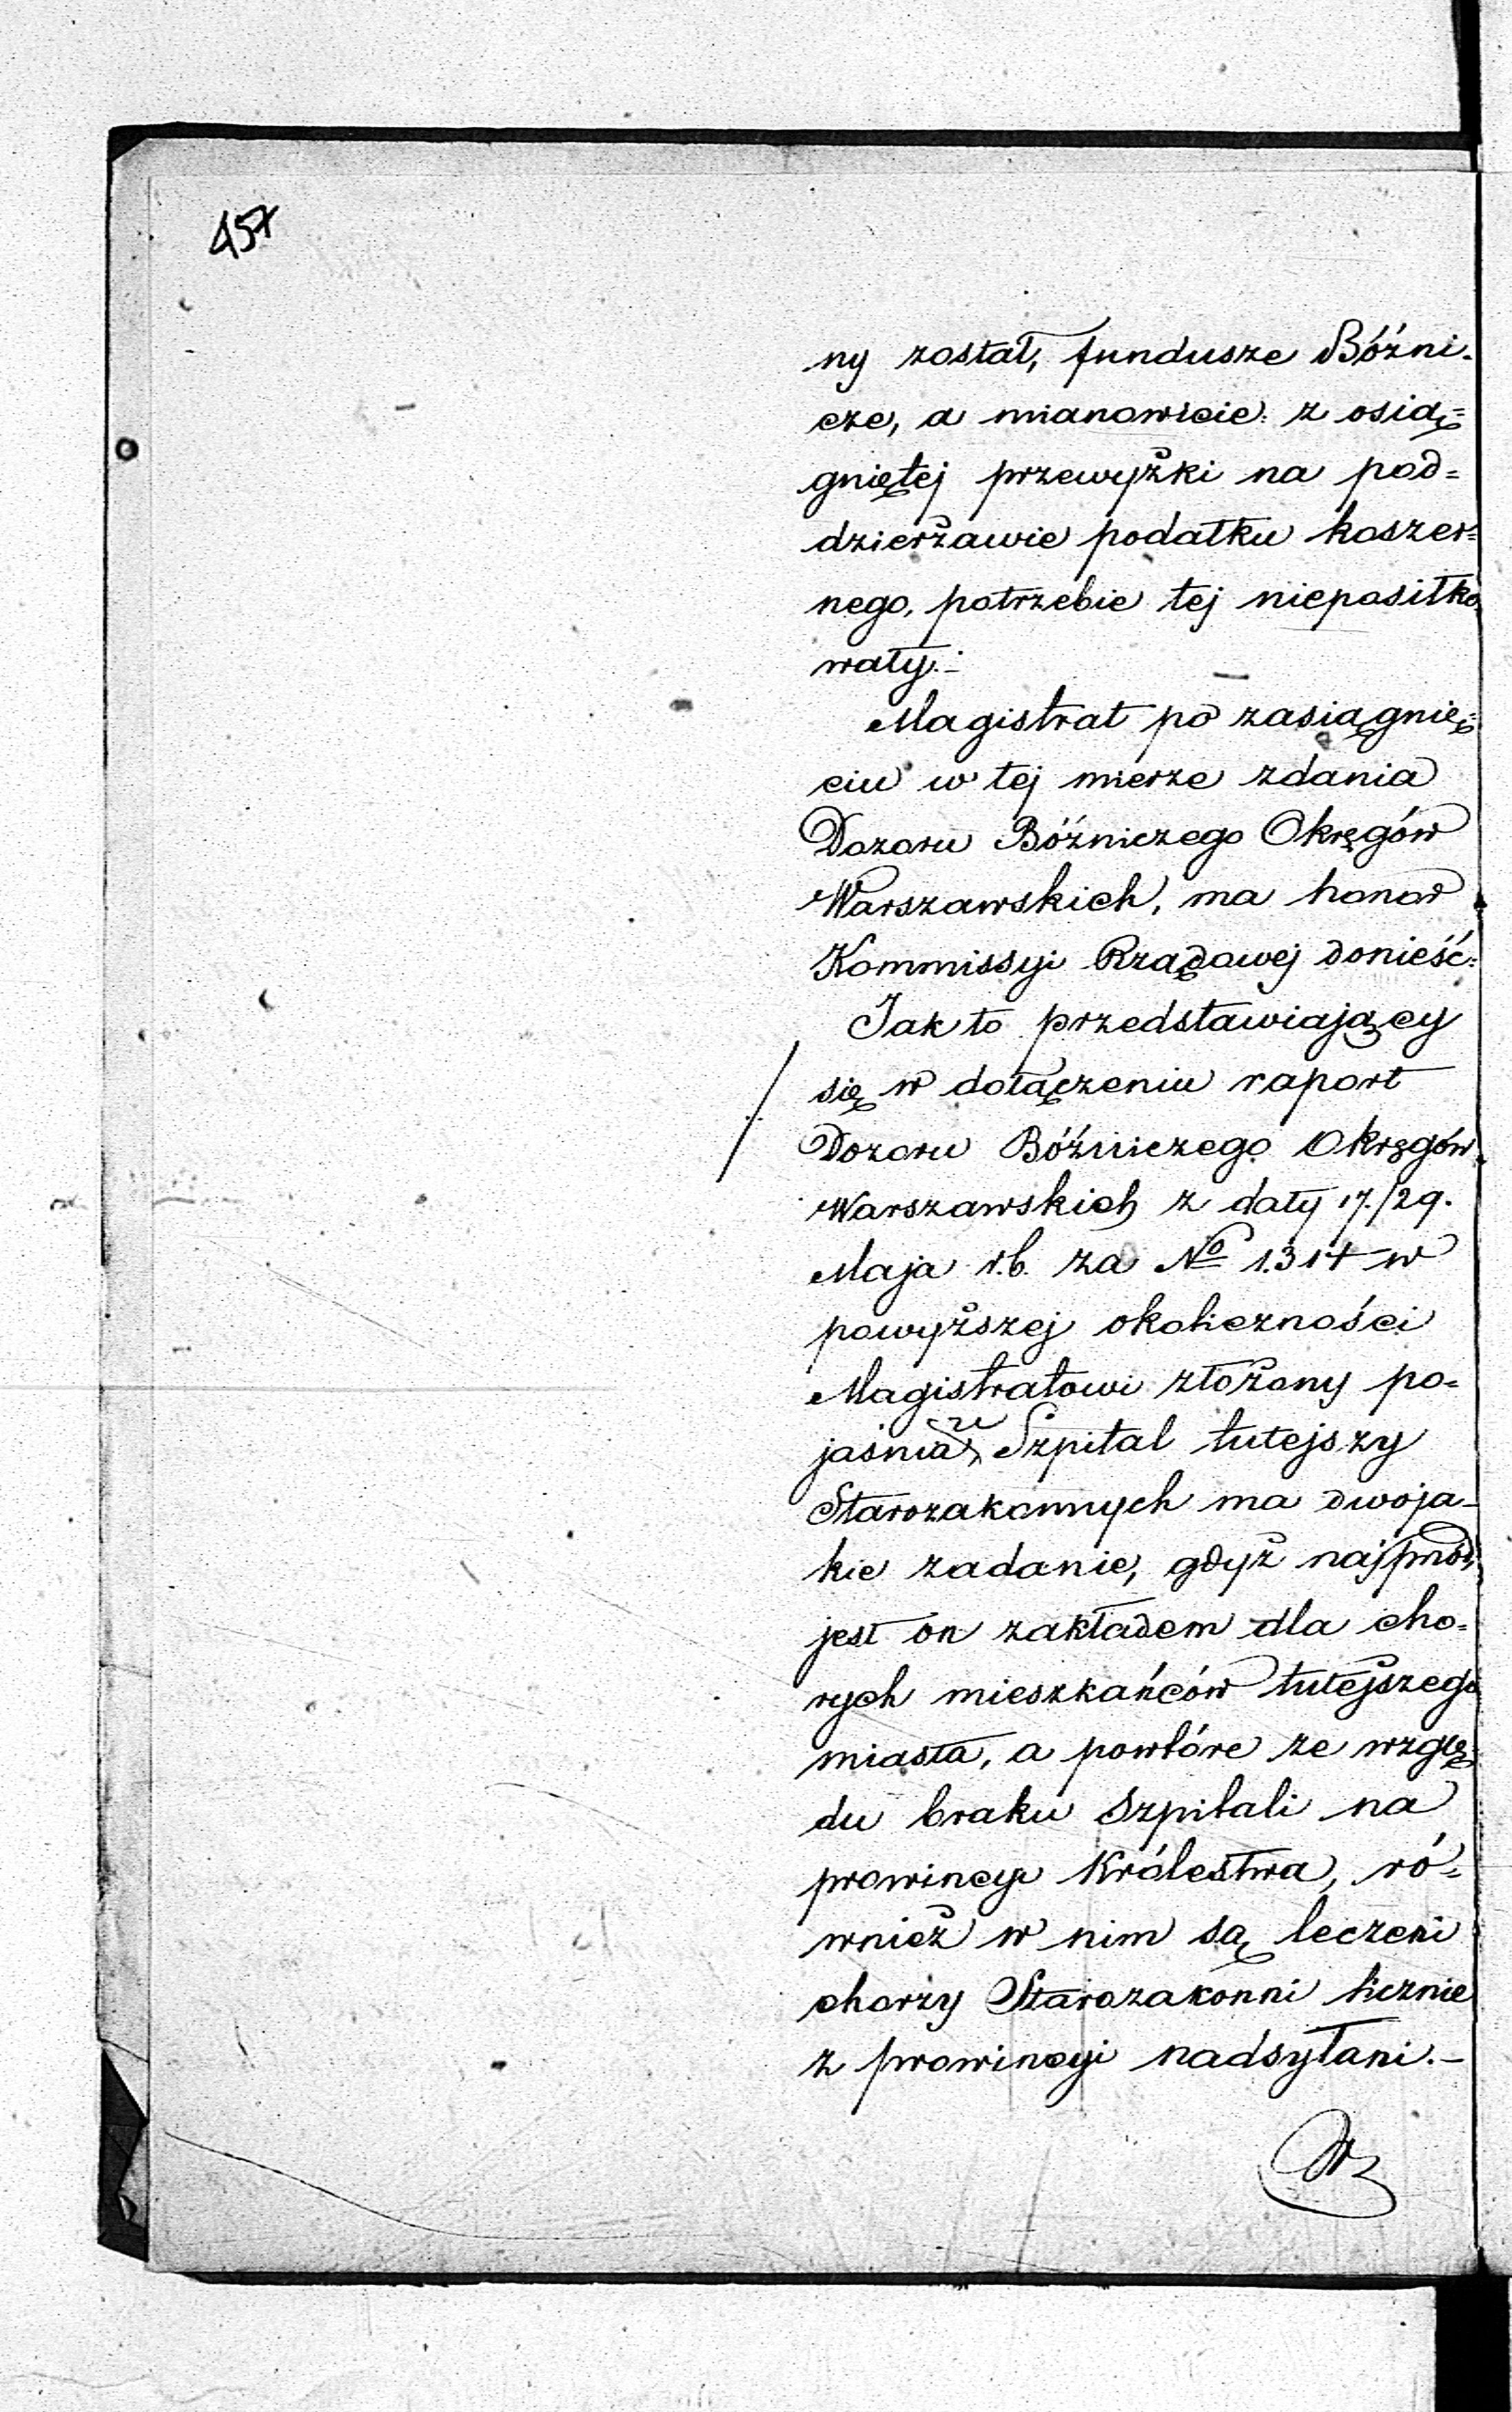 457
ny został, fundusze Bóźni-
cze, a mianowicie: z osią=
gniętej przewyżki na pod=
dzierżawie podatku koszer=
nego, potrzebie tej nieposiłko
wały.-
Magistrat po zasiągnię=
ciu w tej mierze zdania
Dozoru Bóźniczego Okręgów
Warszawskich, ma honor
Kommissyi Rządowej donieść:
Jak to przedstawiający
się w dołączeniu raport
Dozoru Bóźniczego Okręgów
Warszawskich z daty 17./29.
Maja r.b. za No 1314 w
powyższej okoliczności
Magistratowi złożony po=
jaśnia, że Szpital tutejszy
Starozakonnych ma dwoja-
kie zadanie, gdyż najprzód,
jest on zakładem dla cho=
rych mieszkańców tutejszego
miasta, a powtóre ze wzglę=
du braku Szpitali na
prowincyi Królestwa, ró=
wnież w nim są leczeni
chorzy Starozakonni licznie
z prowincyi nadsyłani.-